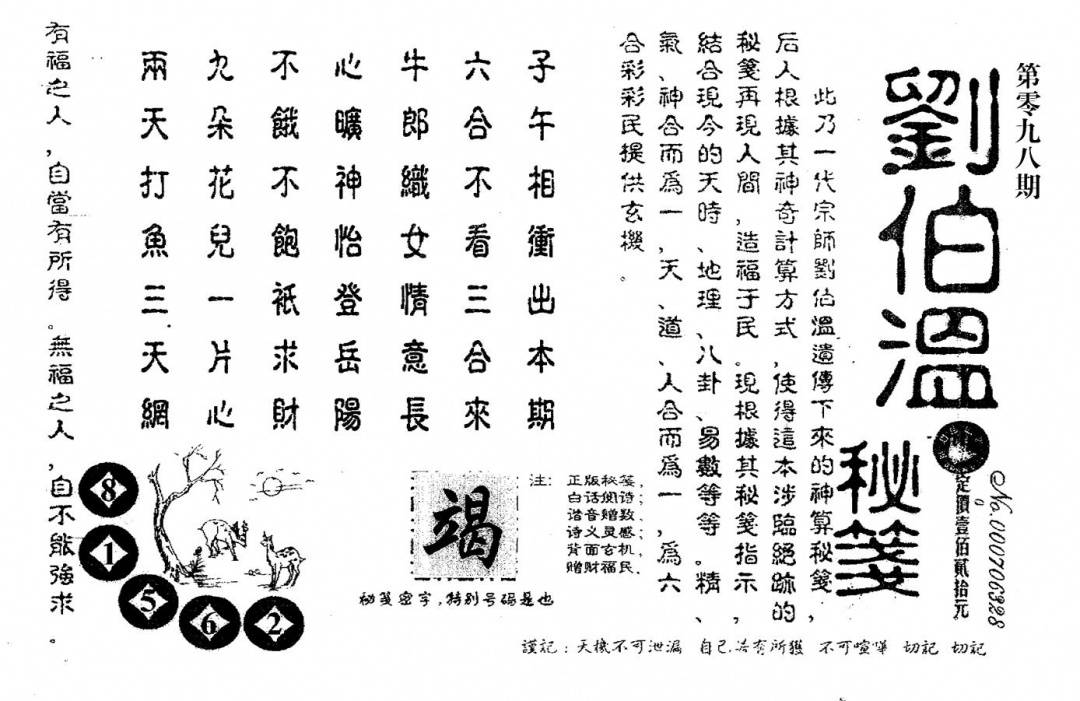 第零九八期
劉伯溫
秘箋
定價壹佰貳拾元
No.000706328
此乃一代宗師劉伯溫遺傳下來的神算秘箋,
后人根據其神奇計算方式,使得這本涉臨絕跡的
秘箋再現人間,造福于民。現根據其秘箋指示,
結合現今的天時、地理、八卦、易數等等。精、
氣、神合而爲一,天、道、人合而爲一,爲六
合彩彩民提供玄機。
子午相衝出本期
六合不看三合來
牛郎織女情意長
心曠神怡登岳陽
不餓不飽祇求財
九朵花兒一片心
兩天打魚三天網
有福之人,自當有所得。無福之人,自不能強求。
注:
正版秘笺,
白话阅诗;
谐音赠数、
诗义灵感;
背面玄机,
赠财福民.
竭
秘笺密字,特别号码是也
8
1
5
6
2
謹記:天機不可泄漏 自己若有所獲 不可喧嘩 切記 切記